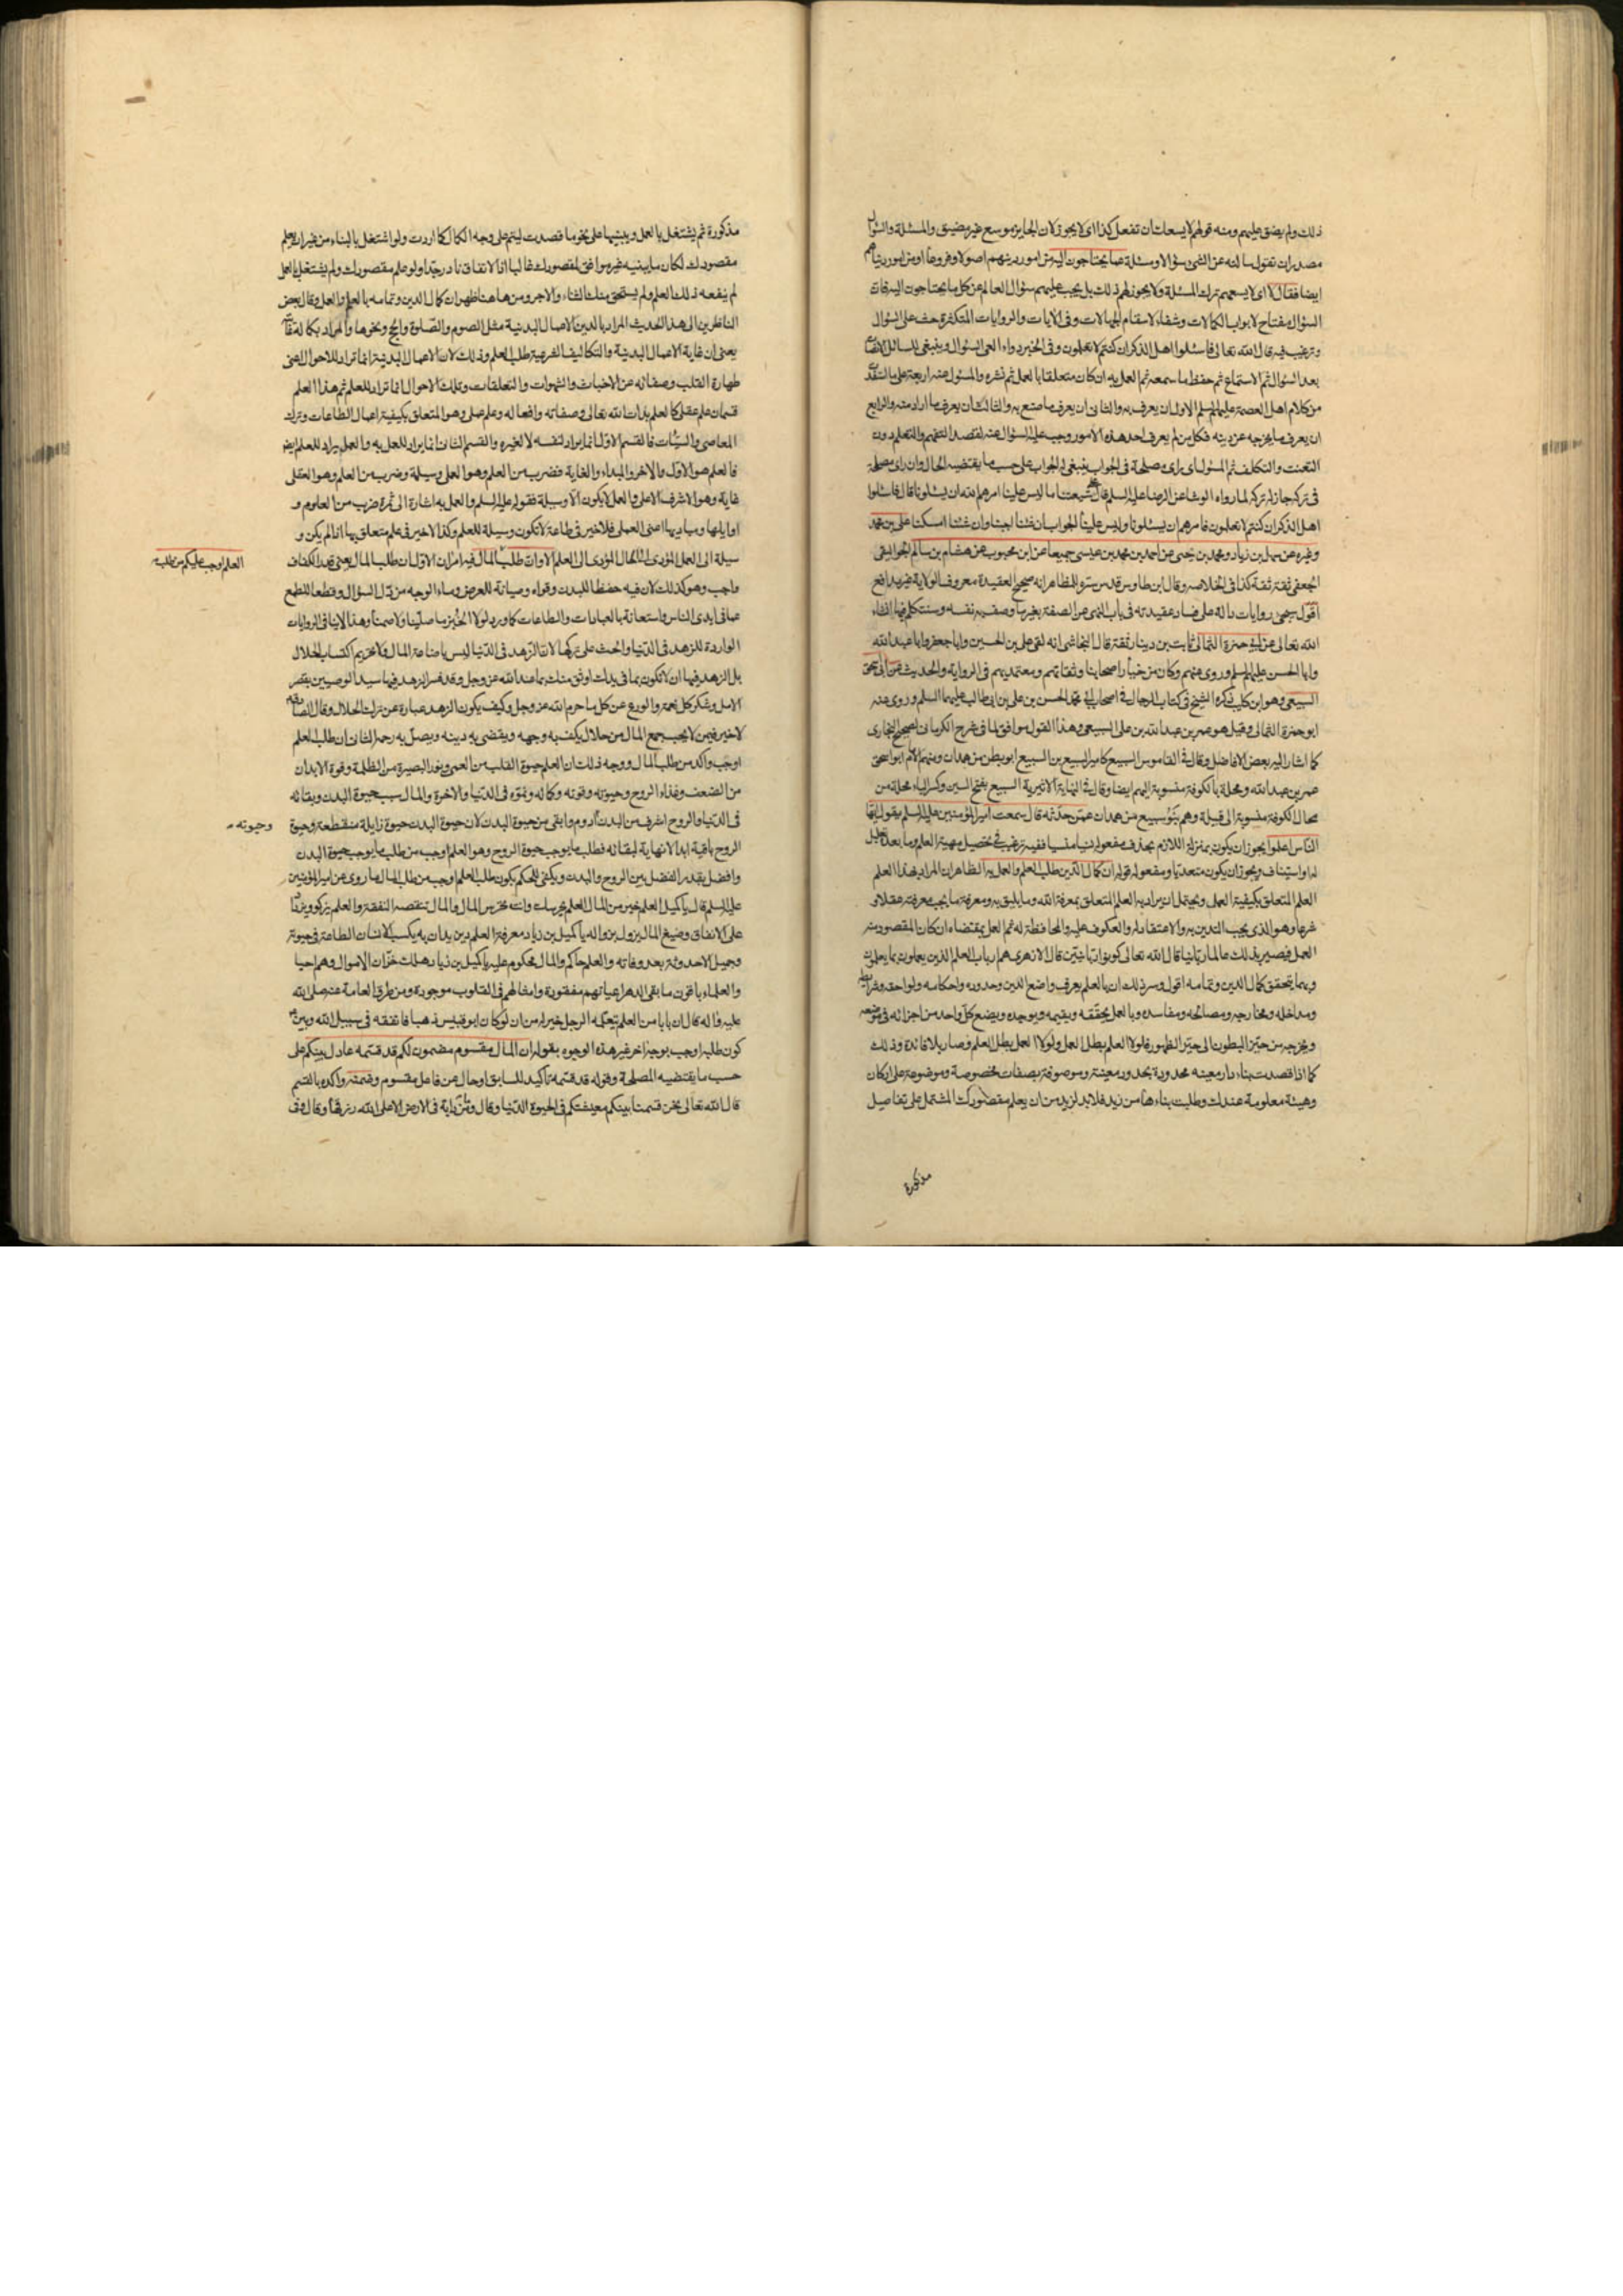 ذلك ولم يضق عليهم ومنه قولهم لا يسعك ان تفعل كذا اى لا يجوز لان الجايز موسع غير مضيق والمسئلة والسؤال
مصدران تقول سالته عن الشئ سؤالا ومسئلة عما يحتاجون اليه من امور دينهم اصولا وفروعا او من امور دنياهم
ايضا فقال لا اى لا يسعهم ترك المسئلة ولا يجوز لهم ذلك بل يجب عليهم سؤال العالم عن كل ما يحتاجون اليه فان
السؤال مفتاح لابواب الكمالات وشفاء لاسقام الجهالات وفى الايات والروايات المتكثرة حث على السؤال
وترغيب فيه قال الله تعالى فاسئلوا اهل الذكر ان كنتم لا تعلمون وفى الخبر دواء العى السؤال وينبغى للسائل الانصات
بعد السؤال ثم الاستماع ثم حفظ ما سمعه ثم العمل به ان كان متعلقا بالعمل ثم نشره والمسئول عنه اربعة على ما
من كلام اهل العصمة عليهم السلم الاول ان يعرف ربه والثانى ان يعرف ما صنع به والثالث ان يعرف ما اراد منه والرابع
ان يعرف ما يخرجه عن دينه فكل من لم يعرف احد هذه الامور وجب عليه السؤال عنه لقصد التفهم والتعلم دون
التعنت والتكلف ثم المسئول ان راى مصلحة فى الجواب ينبغى له الجواب على حسب ما يقتضيه الحال وان راى مصلحة
فى تركه جاز له تركه لما رواه الوشا عن الرضا عليه السلم قال على شيعتنا ما ليس علينا امرهم الله ان يسئلونا قال فاسئلوا
اهل الذكر ان كنتم لا تعلمون فامرهم ان يسئلونا وليس علينا الجواب ان شئنا اجبنا وان شئنا امسكنا على بن محمد
وغيره عن سهل بن زياد ومحمد بن يحيى عن احمد بن محمد بن عيسى جميعا عن ابن محبوب عن هشام بن سالم الجواليقى
الجعفى ثقة ثقة كذا فى الخلاصة وقال ابن طاوس قدس سره الظاهر انه صحيح العقيدة معروف الولاية غير مدافع
اقول سيجئ روايات دالة على فساد عقيدته فى باب النهى عن الصفة بغير ما وصف به نفسه وسنتكلم فيها انشاء
الله تعالى عن ابى حمزة الثمالى ثابت بن دينار ثقة قال النجاشى انه لقى على بن الحسين وابا جعفر وابا عبد الله
وابا الحسن عليهم السلم وروى عنهم وكان من خيار اصحابنا وثقاتهم ومعتمديهم فى الرواية والحديث عن ابى اسحق
السبيعى وهو ابن كليب ذكره الشيخ فى كتاب الرجال فى اصحاب ابى محمد الحسن بن على بن ابى طالب عليهما السلم وروى عنه
ابو حمزة الثمالى وقيل هو عمر بن عبد الله بن على السبيعى وهذا القول موافق لما فى شرح الكرمانى لصحيح البخارى
كما اشار اليه بعض الافاضل وقال فى القاموس السبيع كامير السبيع بن السبيع ابو بطن من همدان ومنهم الامام ابو اسحق
عمر بن عبد الله ومحلة بالكوفة منسوبة اليهم ايضا وقال فى النهاية الاثيرية السبيع بفتح السين وكسر الباء محلة من
محال الكوفة منسوبة الى قبيلة وهم بنو سبيع من همدان عمن حدثه قال سمعت امير المؤمنين عليه السلم يقول ايها
الناس اعلموا يجوز ان يكون بمنزلة اللازم بحذف مفعوله نسيا منسيا ففيه ترغيب فى تحصيل مهية العلم وما بعده
له او استيناف ويجوز ان يكون متعديا ومفعوله قوله ان كمال الدين طلب العلم والعمل به الظاهر ان المراد بهذا العلم
العلم المتعلق بكيفية العمل ويحتمل ان يراد به العلم المتعلق بمعرفة الله وما يليق به ومعرفة ما يجب معرفته عقلا و
شرعا وهو الذى يجب التدين به والاعتقاد له والعكوف عليه والمحافظة له ثم العمل بمقتضاه ان كان المقصود منه
العمل فيصير بذلك عالما ربانيا قال الله تعالى كونوا ربانيين قال الازهرى هم ارباب العلم الذين يعملون بما يعلمون
وبهما يتحقق كمال الدين وتمامه اقول وسر ذلك ان بالعلم يعرف واضع الدين وحدوده واحكامه ولواحقه وشرايطه
ومداخله ومخارجه ومصالحه ومفاسده وبالعمل يحققه ويقيمه ويوجده ويضع كل واحد من اجزائه فى موضعه
ويخرجه من حيز البطون الى حيز الظهور فلولا العلم بطل العمل ولولا العمل بطل العلم وصار بلا فائدة وذلك
كما اذا قصدت بناء دار معينه محدودة بحدود معينة وموصوفة بصفات مخصوصة وموضوعة على اركان
وهيئة معلومة عندك وطلبت بناءها من زيد فلا بد لزيد من ان يعلم مقصودك المشتمل على تفاصيل
مذكورة
مذكورة ثم يشتغل بالعمل ويبنيها على نحو ما قصدت ليتم على وجه الكمال كما اردت ولو اشتغل بالبناء من غير ان يعلم
مقصودك لكان ما يبنيه غير موافق لمقصودك غالبا اذ الاتفاق نادر جدا ولو علم مقصودك ولم يشتغل بالعمل
لم ينفعه ذلك العلم ولم يستحق منك الثناء والاجر ومن هاهنا ظهر ان كمال الدين وتمامه بالعلم والعمل وقال بعض
الناظرين الى هذا الحديث المراد بالدين الاعمال البدنية مثل الصوم والصلوة والحج ونحوها والمراد بكماله غايته
يعنى ان غاية الاعمال البدنية والتكاليف الشرعية طلب العلم وذلك لان الاعمال البدنية انما تراد للاحوال اعنى
طهارة القلب وصفائه عن الاخباث والشهوات والتعلقات وتلك الاحوال انما تراد للعلم ثم هذا العلم
قسمان علم عقلى كالعلم بذات الله تعالى وصفاته وافعاله وعلم عملى وهو المتعلق بكيفية اعمال الطاعات وترك
المعاصى والسيئات فالقسم الاول انما يراد لنفسه لا لغيره والقسم الثانى انما يراد للعمل به والعمل يراد للعلم ايضا
فالعلم هو الاول والاخر والمبداء والغاية فضرب من العلم وهو العملى وسيلة وضرب من العلم وهو العقلى
غاية وهو الاشرف الاعلى والعمل لا يكون الا وسيلة فقوله عليه السلم والعمل به اشارة الى ثمرة ضرب من العلوم و
اوايلها ومباديها اعنى العملى فلا خير فى طاعة لا تكون وسيلة للعلم وكذا لا خير فى علم متعلق بها اذا لم يكن و
سيلة الى العمل المؤدى الى الحال المؤدى الى العلم الا وان طلب المال فيه امران الاول ان طلب المال يعنى قدر الكفاف
العلم اوجب عليكم من طلب
واجب وهو كذلك لان فيه حفظا للبدن وقواه وصيانة للعرض وماء الوجه من ذل السؤال وقطعا للطمع
عما فى ايدى الناس واستعانة بالعبادات والطاعات كما ورد لولا الخبز ما صلينا ولا صمنا وهذا لا ينافى الروايات
الواردة للزهد فى الدنيا والحث على تركها لان الزهد فى الدنيا ليس باضاعة المال ولا تحريم اكتساب الحلال
بل الزهد فيها ان لا تكون بما فى يدك اوثق منك بما عند الله عز وجل وقد فسر الزهد فيها سيد الوصيين بقصر
الامل وشكر كل نعمة والورع عن كل ما حرم الله عز وجل وكيف يكون الزهد عبارة عن ترك الحلال وقال الصادق
لا خير فيمن لا يحب جمع المال من حلال يكف به وجهه ويقضى به دينه ويصل به رحمه الثانى ان طلب العلم
اوجب واكد من طلب المال ووجه ذلك ان العلم حيوة القلب من العمى ونور البصيرة من الظلمة وقوة الابدان
من الضعف وغذاء الروح وحيوته وقوته وكماله ونموه فى الدنيا والاخرة والمال سبب حيوة البدن وبقائه
فى الدنيا والروح اشرف من البدن ادوم وابقى من حيوة البدن لان حيوة البدن حيوة زايلة منقطعة وحيوة
وحيوته
الروح باقية ابدا لا نهاية لبقائه فطلب ما يوجب حيوة الروح وهو العلم اوجب من طلب ما يوجب حيوة البدن
وافضل بقدر الفضل بين الروح والبدن ويكفى للحكم بكون طلب العلم اوجب من طلب المال ما روى عن امير المؤمنين
عليه السلم قال يا كميل العلم خير من المال العلم يحرسك وانت تحرس المال والمال تنقصه النفقة والعلم يزكو
على الانفاق وصنيع المال يزول بزواله يا كميل بن زياد معرفة العلم دين يدان به يكسب الانسان الطاعة فى حيوته
وجميل الاحدوثة بعد وفاته والعلم حاكم والمال محكوم عليه يا كميل بن زياد هلك خزان الاموال وهم احياء
والعلماء باقون ما بقى الدهر اعيانهم مفقودة وامثالهم فى القلوب موجودة ومن طرق العامة عنه صلى الله
عليه واله قال ان بابا من العلم يتعلمه الرجل خير له من ان لو كان ابو قبيس ذهبا فانفقه فى سبيل الله وبين
كون طلبه اوجب بوجه اخر غير هذه الوجوه بقوله ان المال مقسوم مضمون لكم قد قسمه عادل بينكم على
حسب ما يقتضيه المصلحة وقوله قد قسمه تاكيد للسابق او حال عن فاعل مقسوم وضمنه واكده بالقسم
قال الله تعالى نحن قسمنا بينكم معيشتكم فى الحيوة الدنيا وقال وما من دابة فى الارض الا على الله رزقها وقال وفى